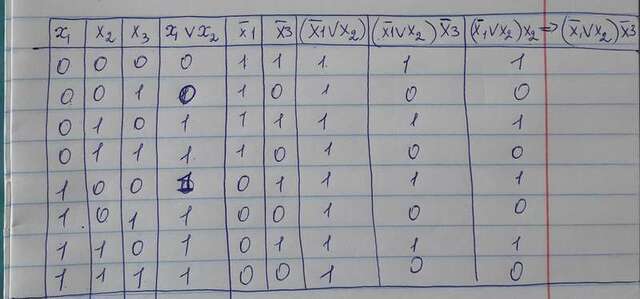 x₁ x₂ x₃ x₁ ∨ x₂ x̄₁ x̄₃ (x̄₁ ∨ x₂) (x̄₁ ∨ x₂) x̄₃ (x₁ ∨ x₂) x₂ => (x̄₁ ∨ x₂) x̄₃
0 0 0 0 1 1 1 1 1
0 0 1 0 1 0 1 0 0
0 1 0 1 1 1 1 1 1
0 1 1 1 1 0 1 0 0
1 0 0 1 0 1 1 1 1
1 0 1 1 0 0 1 0 0
1 1 0 1 0 1 1 1 1
1 1 1 1 0 0 1 0 0